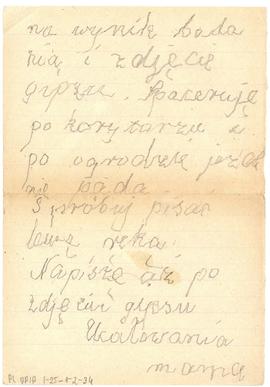 na wynik bada
nia i zdjęcie
gipsu. Spaceruję
po korytarzu i
po ogrodzie jeżeli
nie pada.
Spróbuj pisać
lewą ręką.
Napiszę aż po
zdjęciu gipsu
Ucałowania
mama